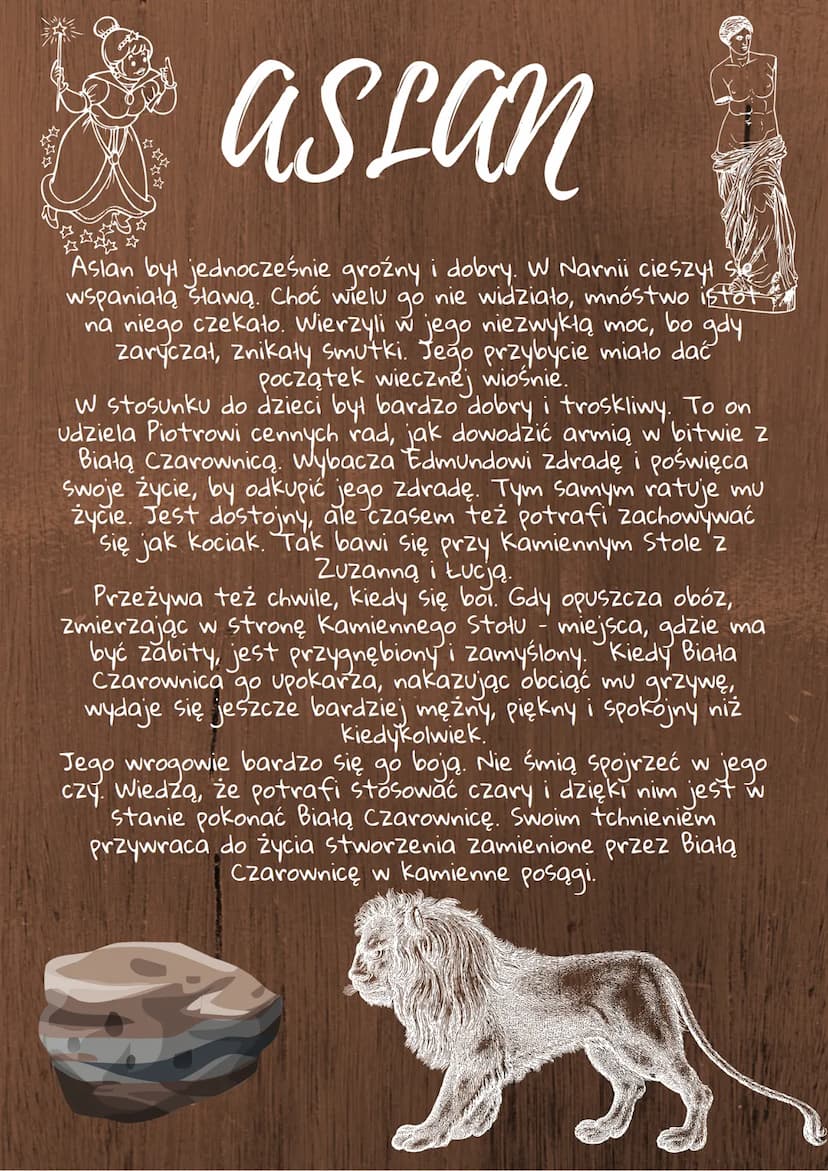 ASLAN
Aslan był jednocześnie groźny i dobry. W Narnii cieszył się
wspaniałą sławą. Choć wielu go nie widziało, mnóstwo istot
na niego czekało. Wierzyli w jego niezwykłą moc, bo gdy
zaryczał, znikały smutki. Jego przybycie miało dać
początek wiecznej wiośnie.
W stosunku do dzieci był bardzo dobry i troskliwy. To on
udziela Piotrowi cennych rad, jak dowodzić armią w bitwie z
Białą Czarownicą. Wybacza Edmundowi zdradę i poświęca
swoje życie, by odkupić jego zdradę. Tym samym ratuje mu
życie. Jest dostojny, ale czasem też potrafi zachowywać
się jak kociak. Tak bawi się przy Kamiennym Stole z
Zuzanną i Łucją.
Przeżywa też chwile, kiedy się boi. Gdy opuszcza obóz,
zmierzając w stronę Kamiennego Stołu - miejsca, gdzie ma
być zabity, jest przygnębiony i zamyślony. Kiedy Biała
Czarownica go upokarza, nakazując obciąć mu grzywę,
wydaje się jeszcze bardziej mężny, piękny i spokojny niż
kiedykolwiek.
Jego wrogowie bardzo się go boją. Nie śmią spojrzeć w jego
czy. Wiedzą, że potrafi stosować czary i dzięki nim jest w
stanie pokonać Białą Czarownicę. Swoim tchnieniem
przywraca do życia stworzenia zamienione przez Białą
Czarownicę w kamienne posągi.